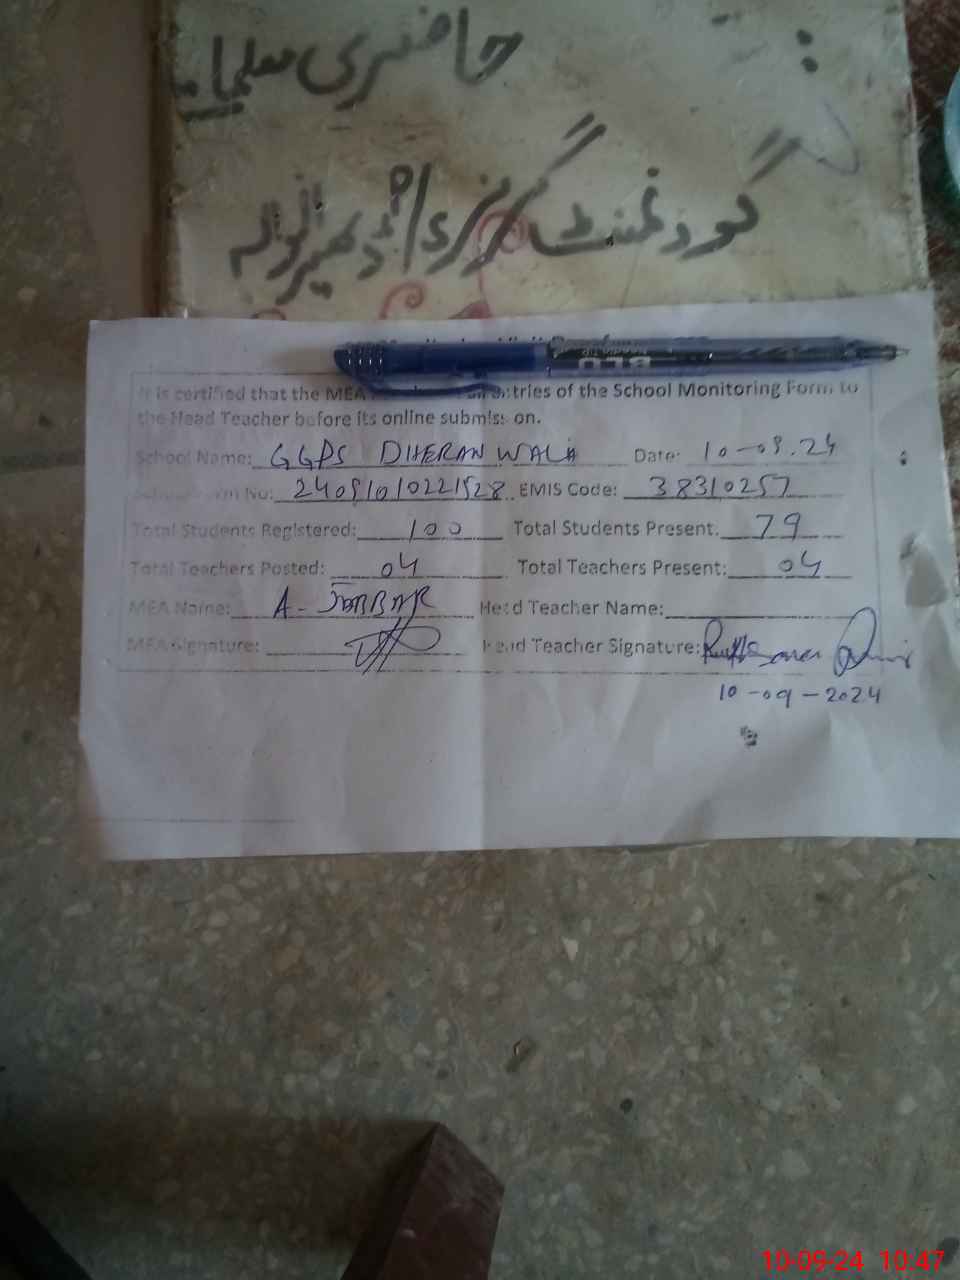 حاضری معلمات
گورنمنٹ گرلز پرائمری ڈھیرانوالہ
It is certified that the MEA entries of the School Monitoring Form to
the Head Teacher before its online submission.
School Name: GGPS DHERAN WALA Date: 10-09.24
No: 240910102221528 EMIS Code: 38310257
Total Students Registered: 100 Total Students Present: 79
Total Teachers Posted: 04 Total Teachers Present: 04
MEA Name: A-JABBAR Head Teacher Name:
MEA Signature: Head Teacher Signature:
10-09-2024
10-09-24 10:47